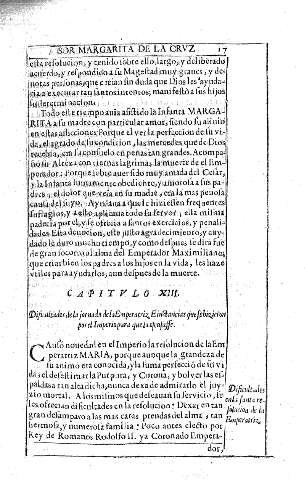 SOR MARGARITA DE LA CRVZ 17
esta resolucion, y tenido sobre ello, largo, y deliberado
acuerdo, y respondido a su Magestad muy graues, y de-
uotas personas, que creían sin duda que Dios les ayuda-
ria a executar tan santos intentos; manifestò a sus hijos
su determinacion.
Todo este tiempo auia assistido la Infanta MARGA-
RITA a su madre con particular amor, siendo su aliuio
en estas aflicciones. Porque el ver la perfeccion de su vi-
da, el agrado de su condicion, las mercedes que de Dios
recebia, era su consuelo en penas tan grandes. Acompa-
ñò su Alteza con tiernas lagrimas la muerte del Em-
perador: Porque sobre auer sido muy amada del Cesar,
y la Infanta sumamente obediente, y amorosa a sus pa-
dres, el dolor que veía en su madre, era la mas penosa
causa del suyo. Ayudaua a que se hiziessen frequentes
sufragios, y a esto aplicaua todo su feruor, ella misma
padecia por el, y se ofrecia a santos exercicios, y penali-
dades. Esta deuocion, este justo agradecimiento, y cuy-
dado le durò mucho tiempo, y como despues se dirà fue
de gran socorro al alma del Emperador Maximiliano;
que criar bien los padres a los hijos en la vida, les haze
vtiles para ayudarlos, aun despues de la muerte.
CAPITVLO XIII.
Dificultades de la jornada de la Emperatriz, E instancias que se hizieron
por el Imperio para que se quedasse.
CAusò nouedad en el Imperio la resolucion de la Em-
peratriz MARIA, porque aunque la grandeza de
su animo era conocida, y la suma perfeccion de su vi-
da, el desestimar la Purpura, y Corona, y boluer las es-
paldas a tan alta dicha, nunca dexa de admirarlo el juy-
zio mortal. A los mismos que desseauan su seruicio, se
les ofrecian dificultades en la resolucion: Dexar en tan
gran desamparo a las mas caras prendas del alma, tan
hermosa, y numerosa familia: Poco antes electo por
Rey de Romanos Rodolfo II. ya Coronado Empera-
dor,
Dificultades
en la santa re-
solucion de la
Emperatriz.